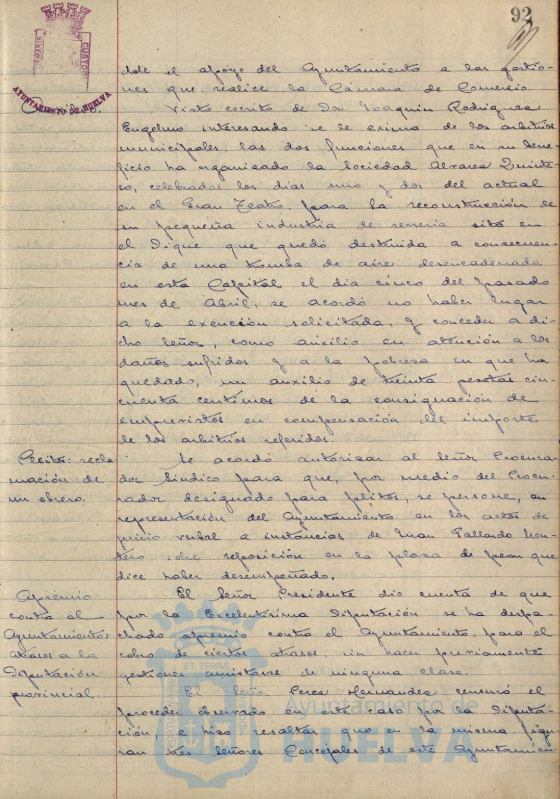 92
AYUNTAMIENTO DE HUELVA
dole el apoyo del Ayuntamiento a las gestio-
nes que realice la Cámara de Comercio.
Auxilios.
Visto escrito de Don Joaquín Rodríguez
Engelmo interesando se le exima de los arbitrios
municipales, las dos funciones que en su bene-
ficio ha organizado la Sociedad Alvarez Quinte-
ro, celebradas los días uno y dos del actual
en el Gran Teatro, para la reconstrucción de
su pequeña industria de serrería sita en
el Dique que quedó destruida a consecuen-
cia de una tromba de aire desencadenada
en esta Capital el día cinco del pasado
mes de Abril, se acordó no haber lugar
a la exención solicitada, y conceder a di-
cho Señor, como auxilio en atención a los
daños sufridos y a la pobreza en que ha
quedado, un auxilio de treinta pesetas cin-
cuenta centimos de la consignación de
imprevistos en compensación del importe
de los arbitrios referidos.
Pleitos: recla-
mación de
un obrero.
Se acordó autorizar al Señor Procura-
dor Síndico para que, por medio del Procu-
rador designado para pleitos, se persone, en
representación del Ayuntamiento en los actos de
juicio verbal a instancias de Juan Gallardo Mon-
tero sobre reposición en la plaza de peon que
dice haber desempeñado.
Apremio
contra el
Ayuntamiento:
atrasos a la
Diputación
provincial.
El Señor Presidente dio cuenta de que
por la Excelentísima Diputación se ha despa-
chado apremio contra el Ayuntamiento, para el
cobro de ciertos atrasos, sin hacer previamente
gestiones amistosas de ninguna clase.
El Señor Perez Hernandez censuró el
proceder observado en este caso por la Diputa-
ción, e hizo resaltar que en la misma figu-
ran tres Señores Concejales de este Ayuntamien-
Ayuntamiento de
HUELVA